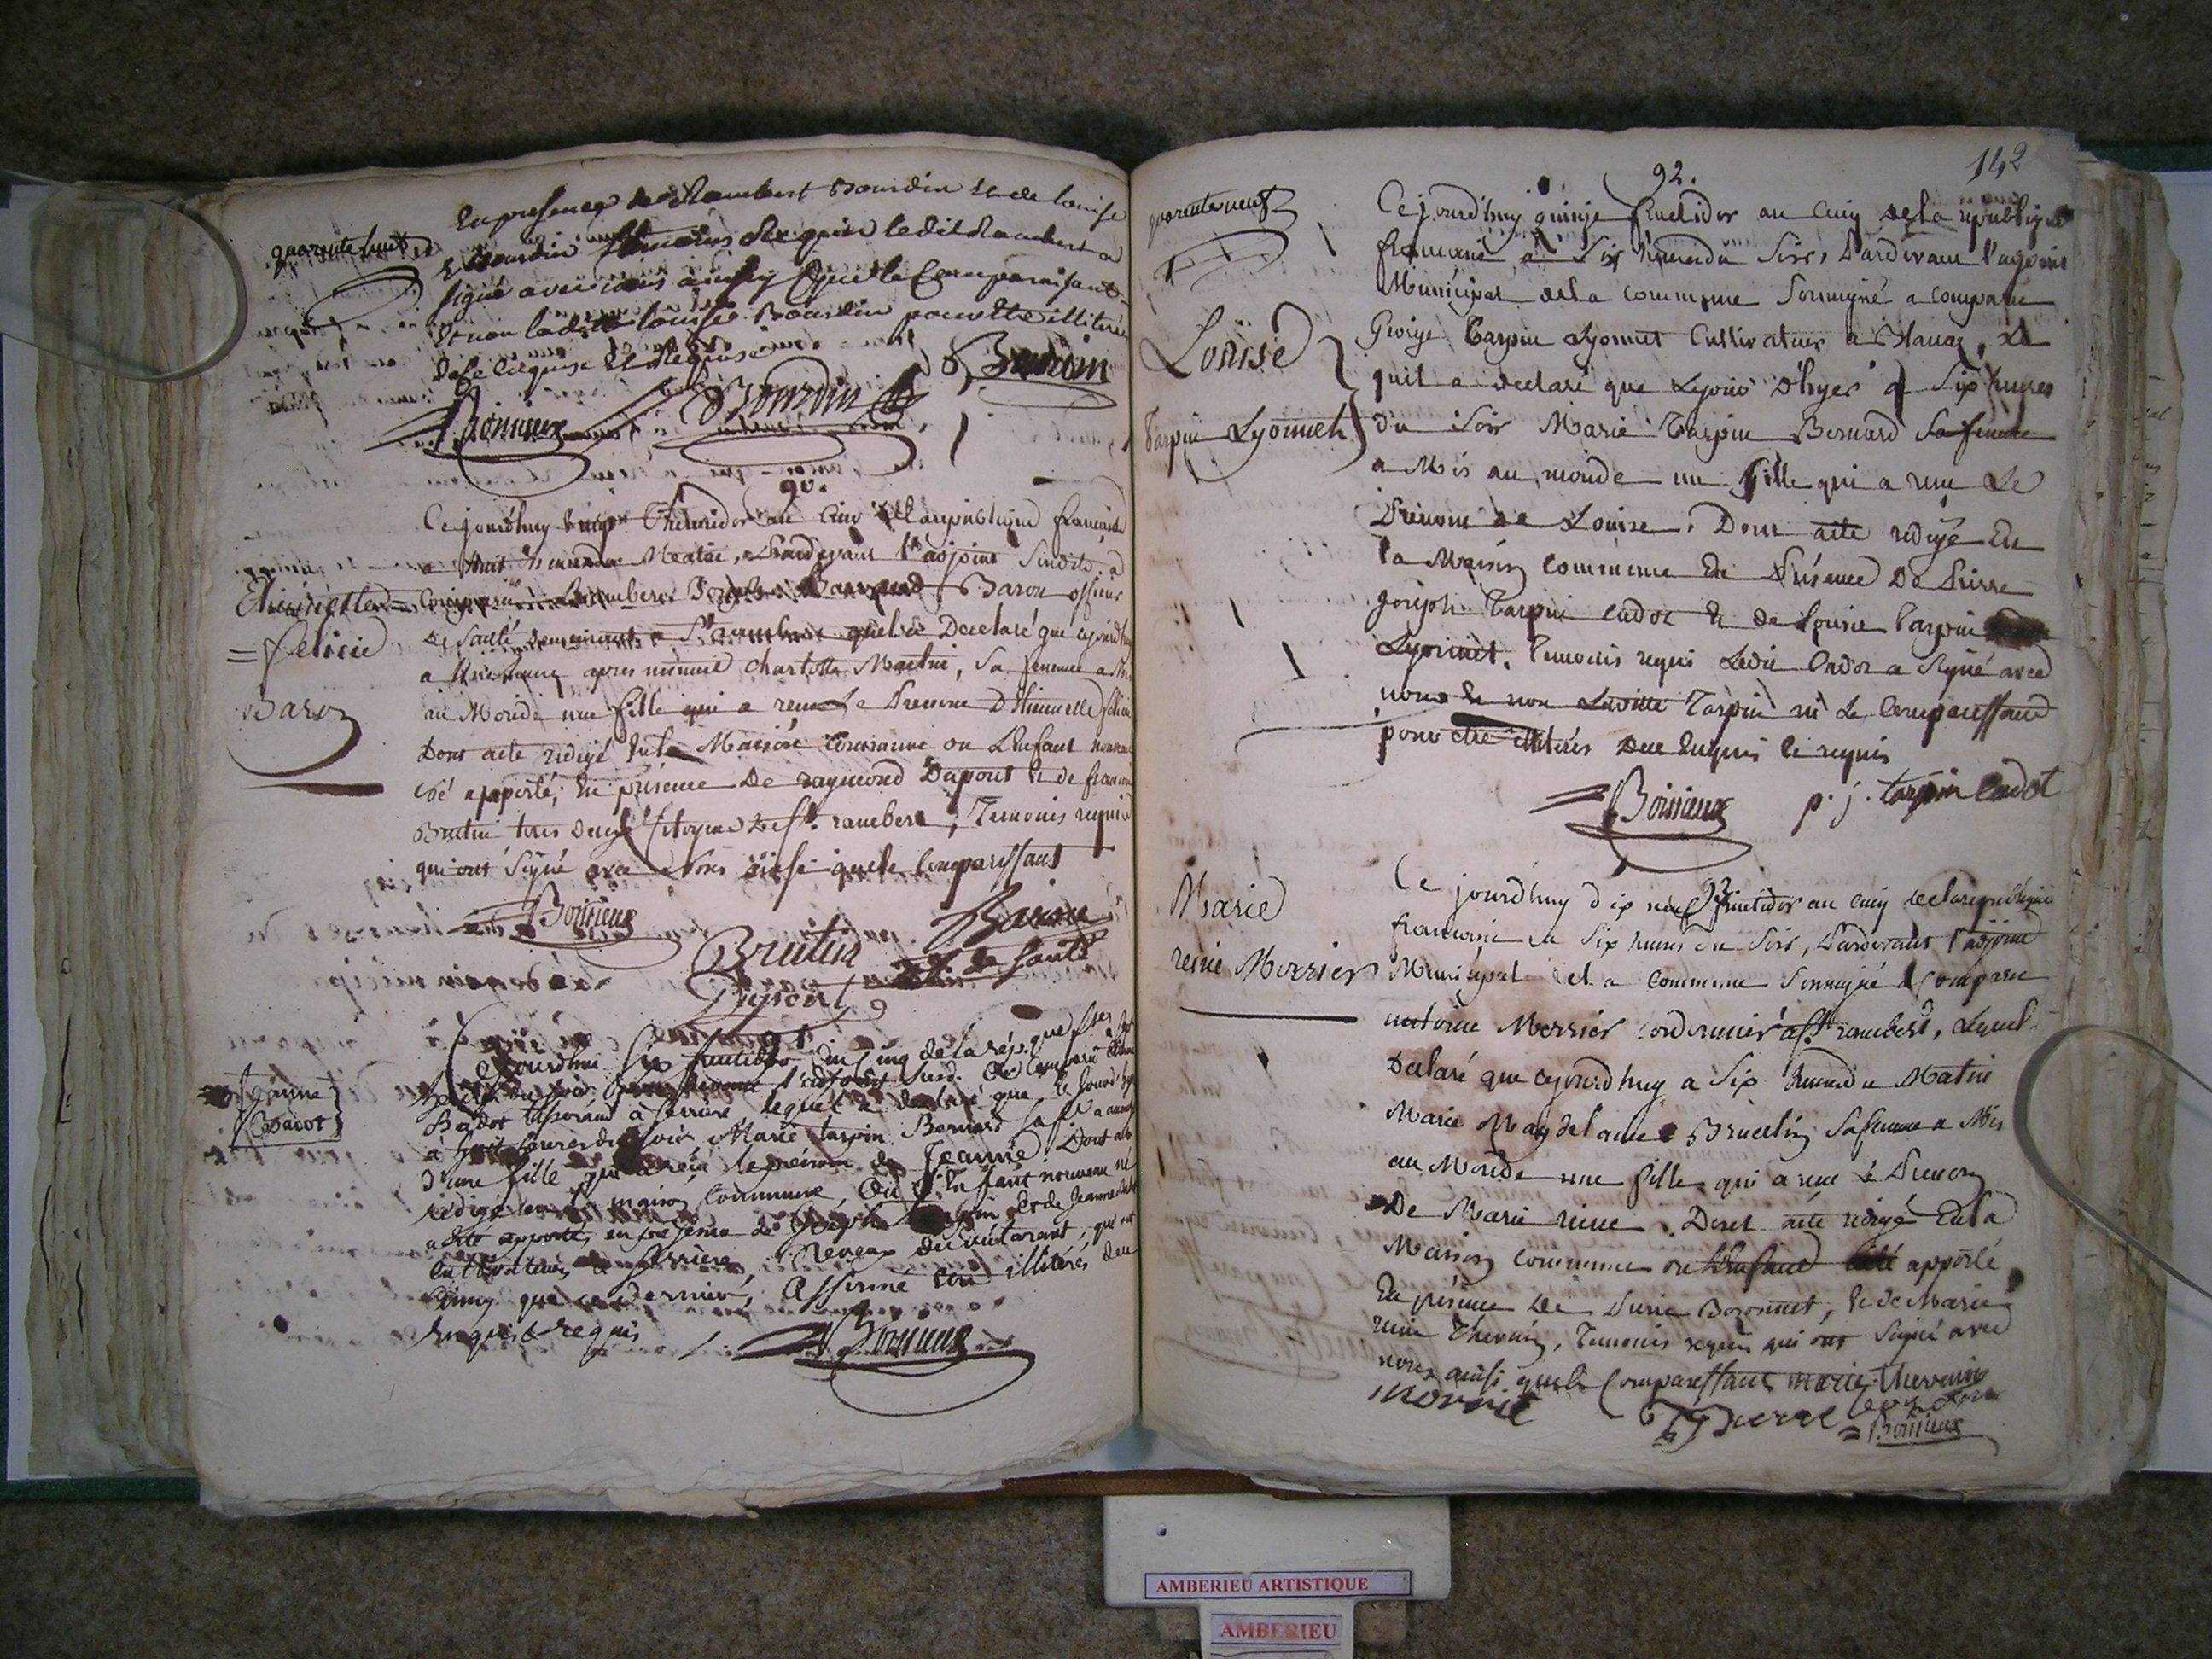 quarente huit
En presence de Rambert Bourdin et de louise
Bourdin temoins Requis ledit Rambert a
signé avec nous ainsy que le Comparaissant
et non ladite louise Bourdin pour etre illiterée
de ce Enquise et Requise
Boissieux Bourdin Bourdin
90.
Ce jourdhuy Thermidor an Cinq de la republique francaise
a huit heures du Matin, Pardevant l'adjoint Susdit a
Henriette
= felicie
Baron
Comparu Rambert Baron officier
de Santé demeurant a St rambert quel a Declaré que cejourdhuy
a une heure apres minuit Charlotte Martin, Sa femme a Mis
au Monde une fille qui a reçu Le Prenom D'Henriette felicie
Dont acte redigé En la Maison Commune ou L'Enfant nouveau
né apporté, En présence De raymond Dupont et de francois
Brutin tous deux Citoyens de St. rambert, Temoins requis
qui ont Signé avec Nous ainsi que le Comparessant
Boissieux Brutin Baron
Dupont off. de Santé
91
Jeanne
Badot
Cejourdhui Six fructidor an Cinq de la rép.que fse, a sept
heures du soir pardevant l'adjoint Susd. a Comparu
Badot à Serriere, lequel a declaré que le jourd'hyer
à huit heures du soir Marie tarpin Bernard sa fe a accouché
d'une fille qui a reçu le prénom de Jeanne. Dont acte
rédigé en la maison Commune, Où l'Enfant nouveau né
a été apporté, en présence de Joseph et de Jeanne
Cultivateurs à Serriere, Neveux du declarant, qui ont
ainsy que ce dernier, Affirmé être illitérés de ce
Enquis & requis
Boissieux
142
92.
quarente neuf
Louise
Tarpin Lyonnet
Ce jourd'huy quinze fructidor an Cinq de la republique
francaise, a Six heures du Soir, Pardevant l'agent
Municipal de la commune Soussigné a comparu
George Tarpin Lyonnet Cultivateur a Blanaz, Le
quel a declaré que Le jour D'hyer a Six heures
du Soir Marie Tarpin Bernard Sa femme
a Mis au monde une fille qui a reçu Le
Prénom de Louise. Dont acte redigé En
la Maison Commune En Présence De Pierre
joseph Tarpin Cadot Et de Louise Tarpin
Lyonnet. Temoins requis Ledit Cadot a Signé avec
nous Et non Laditte Tarpin ni Le Comparessant
pour etre illitérés De ce Enquis et requis
Boissieux p. j. tarpin Cadot
93
Marie
reine Mersier
Ce jourdhuy dix neuf fructidor an Cinq de la republique
francaise a Six heures du Soir, Pardevant l'adjoint
Municipal de la Commune Soussigné a Comparu
antoine Mersier Cordonnier a St. rambert, Lequel
Declaré que cejourdhuy a Six heures du Matin
Marie Magdelaine Brucelin Sa femme a Mis
au Monde une fille qui a reçu Le Prenom
De Marie reine. Dont acte redigé En la
Maison Commune ou L'Enfant été apporté
En présence De Pierre Bozonnet, et de Marie
reine Thevenin, Temoins requis qui ont Signé avec
nous ainsi que le Comparessant marie thevenin
Mersie Pierre bozonne
Boissieux
AMBERIEU ARTISTIQUE
AMBERIEU